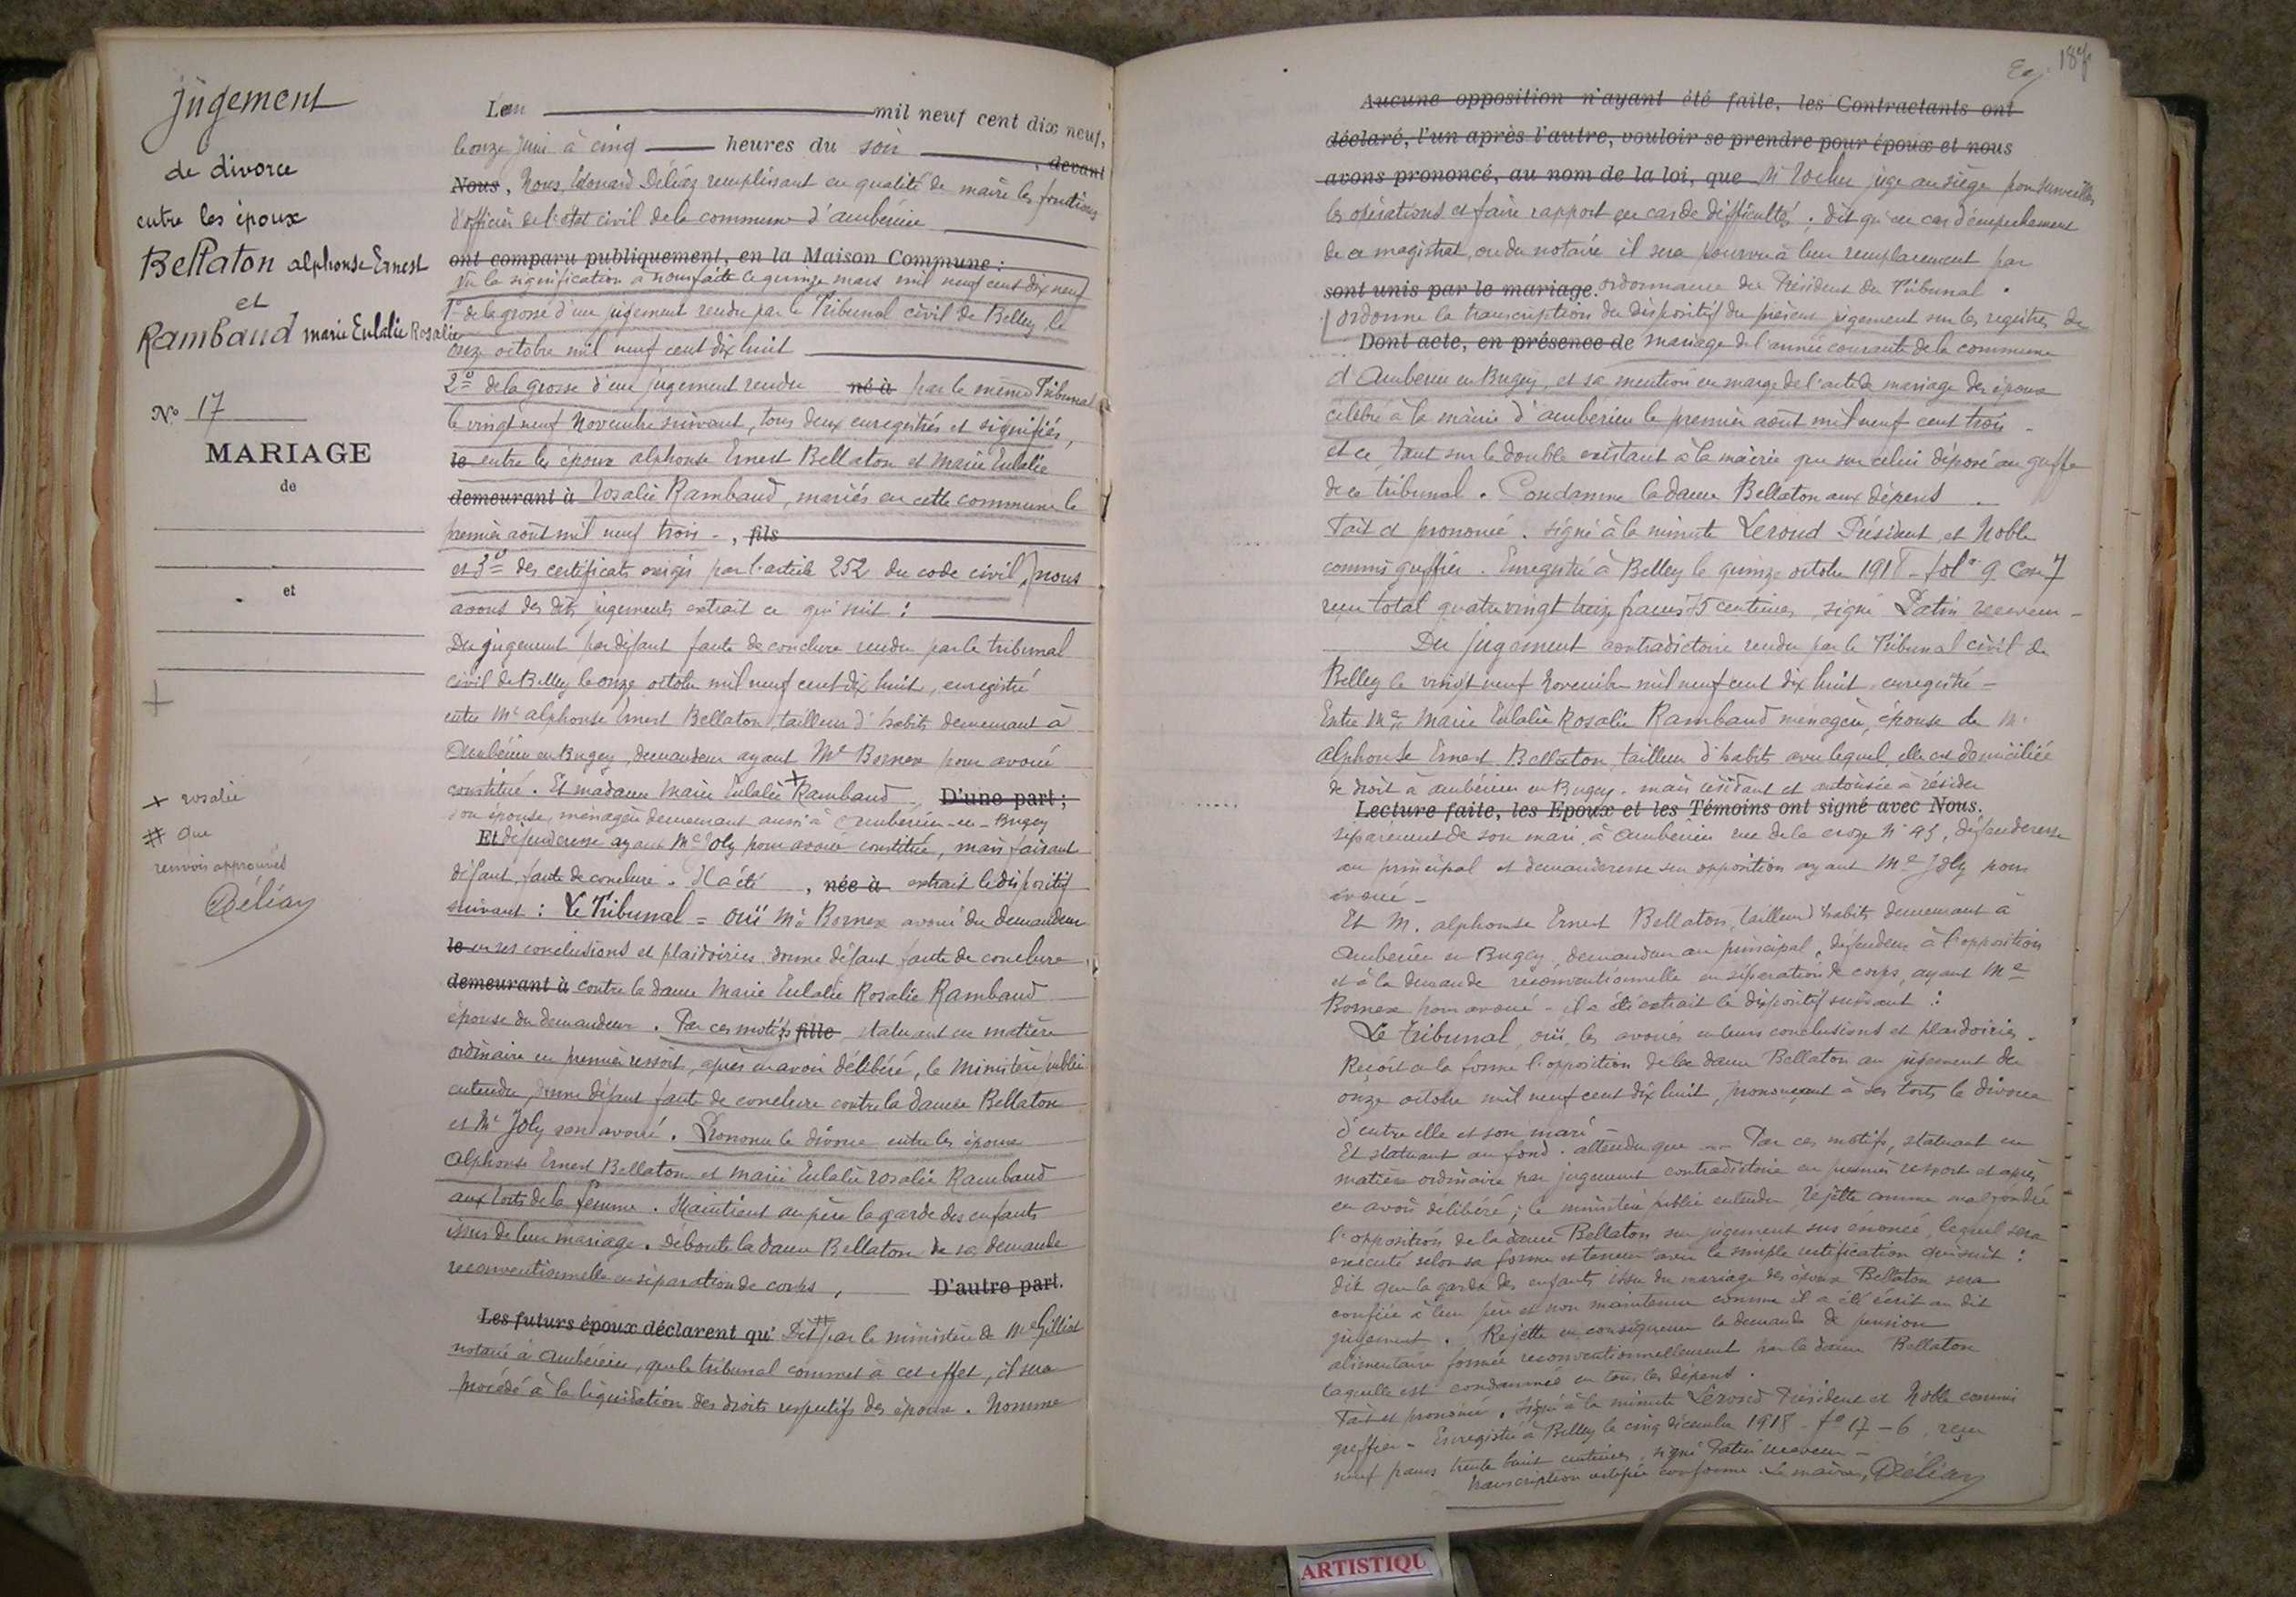 jugement
de divorce
entre les époux
Bellaton alphonse Ernest
et
Rambaud marie Eulalie Rosalie
No 17
MARIAGE
de
et
+ rosalie
# que
renvois approuvés
Déliaz
L'an mil neuf cent dix neuf,
le onze juin à cinq heures du soir , devant
Nous, Nous, Edouard Déliaz remplissant en qualité de maire les fonctions
d'officier de l'état civil de la commune d'ambérieu
ont comparu publiquement, en la Maison Commune :
Vu la signification à nous faite le quinze mars mil neuf cent dix neuf
1o de la grosse d'un jugement rendu par le Tribunal civil de Belley le
onze octobre mil neuf cent dix huit
2o de la grosse d'un jugement rendu né à par le même Tribunal
le vingt neuf Novembre suivant, tous deux enregistrés et signifiés,
le entre les époux alphonse Ernest Bellaton et Marie Eulalie
demeurant à rosalie Rambaud, mariés en cette commune le
premier août mil neuf trois - , fils
et 3o des certificats exigés par l'article 252 du code civil, nous
avons des dits jugements extrait ce qui suit :
Du jugement par défaut faute de conclure rendu par le tribunal
civil de Belley le onze octobre mil neuf cent dix huit, enregistré
entre Mr alphonse Ernest Bellaton, tailleur d'habits demeurant à
Ambérieu en Bugey, demandeur ayant Me Bornex pour avoué
constitué. Et madame Marie Eulalie + Rambaud D'une part ;
son épouse, ménagère demeurant aussi à Ambérieu-en-Bugey
Et défenderesse ayant Me Joly pour avoué constitué, mais faisant
défaut faute de conclure. Il a été , née à extrait le dispositif
suivant : Le Tribunal = ouï Me Bornex avoué du demandeur
le en ses conclusions et plaidoiries donne défaut faute de conclure
demeurant à contre la dame Marie Eulalie Rosalie Rambaud
épouse du demandeur. Par ces motifs fille, statuant en matière
ordinaire en premier ressort, après en avoir délibéré, le Ministère public
entendu, donne défaut faute de conclure contre la dame Bellaton
et Me Joly son avoué. Prononce le divorce entre les époux
Alphonse Ernest Bellaton et marie Eulalie rosalie Rambaud
aux torts de la femme. Maintient au père la garde des enfants
issus de leur mariage. Déboute la dame Bellaton de sa demande
reconventionnelle en séparation de corps, D'autre part.
Les futurs époux déclarent qu' Dit # par le ministère de Me Gilliat
notaire à Ambérieu, que le tribunal commet à cet effet, il sera
procédé à la liquidation des droits respectifs des époux. Nomme
187
Aucune opposition n'ayant été faite, les Contractants ont
déclaré, l'un après l'autre, vouloir se prendre pour époux et nous
avons prononcé, au nom de la loi, que Mr juge au siège pour surveiller
les opérations et faire rapport en cas de difficultés ; dit qu'en cas d'empêchement
de ce magistrat, ou du notaire il sera pourvu à leur remplacement par
sont unis par le mariage. ordonnance du Président du Tribunal.
ordonne la transcription du dispositif du présent jugement sur les registres de
Dont acte, en présence de mariage de l'année courante de la commune
d'Ambérieu en Bugey, et sa mention en marge de l'acte de mariage des époux
célébré à la mairie d'ambérieu le premier août mil neuf cent trois -
et ce, tant sur le double existant à la mairie que sur celui déposé au greffe
de ce tribunal. Condamne la dame Bellaton aux dépens.
Fait et prononcé. signé à la minute Leroud Président et Noble
commis greffier. Enregistré à Belley le quinze octobre 1918 - folo 9 Case 7
reçu total quatre vingt treize francs 75 centimes, signé Patin receveur -
Du jugement contradictoire rendu par le Tribunal civil de
Belley le vingt neuf Novembre mil neuf cent dix huit enregistré =
Entre Me Marie Eulalie Rosalie Rambaud ménagère, épouse de M.
alphonse Ernest Bellaton, tailleur d'habits avec lequel elle est domiciliée
de droit à ambérieu en Bugey. mais résidant et autorisée à résider
Lecture faite, les Epoux et les Témoins ont signé avec Nous.
séparément de son mari, à ambérieu rue de la croze No 45, défenderesse
au principal et demanderesse sur opposition ayant Me Joly pour
avoué -
Et M. alphonse Ernest Bellaton, tailleur d'habits demeurant à
Ambérieu en Bugey demandeur au principal, défendeur à l'opposition
et à la demande reconventionnelle en séparation de corps, ayant Me
Bornex pour avoué - il a été extrait le dispositif suivant :
Le Tribunal, ouï, les avoués en leurs conclusions et plaidoiries -
Reçoit en la forme l'opposition de la dame Bellaton au jugement du
onze octobre mil neuf cent dix huit, prononçant à ses torts le divorce
d'entre elle et son mari -
Et statuant au fond. attendu que ... Par ces motifs, statuant en
matière ordinaire par jugement contradictoire en premier ressort et après
en avoir délibéré ; le ministère public entendu, rejette comme mal fondée
l'opposition de la dame Bellaton au jugement sus énoncé, lequel sera
exécuté selon sa forme et teneur avec la simple rectification qui suit :
dit que la garde des enfants issus du mariage des époux Bellaton sera
confiée à leur père et non maintenue comme il a été écrit au dit
jugement. Rejette en conséquence la demande de pension
alimentaire formée reconventionnellement par la dame Bellaton
laquelle est condamnée en tous les dépens.
Fait et prononcé. signé à la minute Leroud Président et Noble commis
greffier - Enregistré à Belley le cinq décembre 1918 - fo 17 - 6, reçu
neuf francs trente huit centimes, signé Patin receveur -
transcription certifiée conforme. Le maire, Déliaz
ARTISTIQU